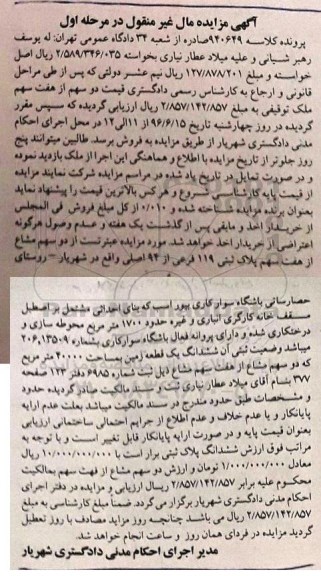 آگهی مزایده مال غیر منقول در مرحله اول
پرونده کلاسه ۹۴۰۶۴۹صادره از شعبه ۳۴ دادگاه عمومی تهران: له یوسف
رهبر شیبانی و علیه میلاد عطار نیاری بخواسته ۲/۵۸۹/۳۴۶/۰۳۵ ریال اصل
خواسته و مبلغ ۱۲۷/۸۷۸/۲۰۱ ریال نیم عشر دولتی که پس از طی مراحل
قانونی و ارجاع به کارشناس رسمی دادگستری قیمت دو سهم از هفت سهم
ملک توقیفی به مبلغ ۲/۸۵۷/۱۴۲/۸۵۷ ریال ارزیابی گردیده که سپس مقرر
گردیده در روز چهارشنبه تاریخ ۹۶/۶/۱۵ از ۱۱الی۱۲ در محل اجرای احکام
مدنی دادگستری شهریار از طریق مزایده به فروش برسد. طالبین میتوانند پنج
روز جلوتر از تاریخ مزایده با اطلاع و هماهنگی این اجرا از ملک بازدید نموده
و در صورت تمایل در تاریخ یاد شده در مراسم مزایده شرکت نمایند مزایده
از قیمت پایه کارشناسی شروع و هرکس بالاترین قیمت را پیشنهاد نماید
بعنوان برنده مزایده شناخته شده و ۰/۰۱۰ از کل مبلغ فروش فی المجلس
از خریدار اخذ و مابقی پس از گذشت یک هفته و عدم وصول هرگونه
اعتراضی از خریدار اخذ خواهد شد. مورد مزایده عبارتست از دو سهم مشاع
از هفت سهم پلاک ثبتی ۱۱۹ فرعی از ۹۴ اصلی واقع در شهریار - روستای
حصارساتی باشگاه سوارکاری بپور اسب که بنای احداثی مشتمل بر اصطبل
مسقف خانه کارگری انباری و غیره حدود ۱۷۰۰ متر مربع محوطه سازی و
درختکاری شده و دارای پروانه فعال باشگاه سوارکاری بشماره ۲۰۶,۱۳۵۰۹
میباشد وضعیت ثبتی آن ششدانگ یک قطعه زمین بمساحت ۴۰۰۰۰ متر مربع
که دو سهم مشاع از هفت سهم مشاع ذیل ثبت شماره ۶۹۸۵ دفتر ۱۲۳ صفحه
۳۷۷ بنام آقای میلاد عطار نیاری ثبت و سند مالکیت صادر گردیده حدود
و مشخصات طبق حدود مندرج در سند مالکیت میباشد بعلت عدم ارایه
پایانکار و یا عدم خلاف و عدم اطلاع از جرایم احتمالی ساختمانی ارزیابی
بعنوان قیمت پایه و در صورت ارایه پایانکار قابل تغییر است و با توجه به
مراتب فوق ارزش ششدانگ پلاک ثبتی برار است با ۱۰/۰۰۰/۰۰۰/۰۰۰ ریال
معادل ۱/۰۰۰/۰۰۰/۰۰۰ تومان و ارزش دو سهم مشاع از فهت سهم بمالکیت
محکسوم علیه برابر ۲/۸۵۷/۱۴۲/۸۵۷ ریسال ارزیابی و مزایده در دفتر اجرای
احکام مدنی دادگستری شهریار برگزار می گردد. ضمنا مبلغ کارشناسی به مبلغ
۲/۸۵۷/۱۴۲/۸۵۷ ریال می باشد چنانچه روز مزاید مصادف با روز تعطیل
گردید مزایده در فردای همان روز و ساعت انجام خواهد شد.
مدیر اجرای احکام مدنی دادگستری شهریار